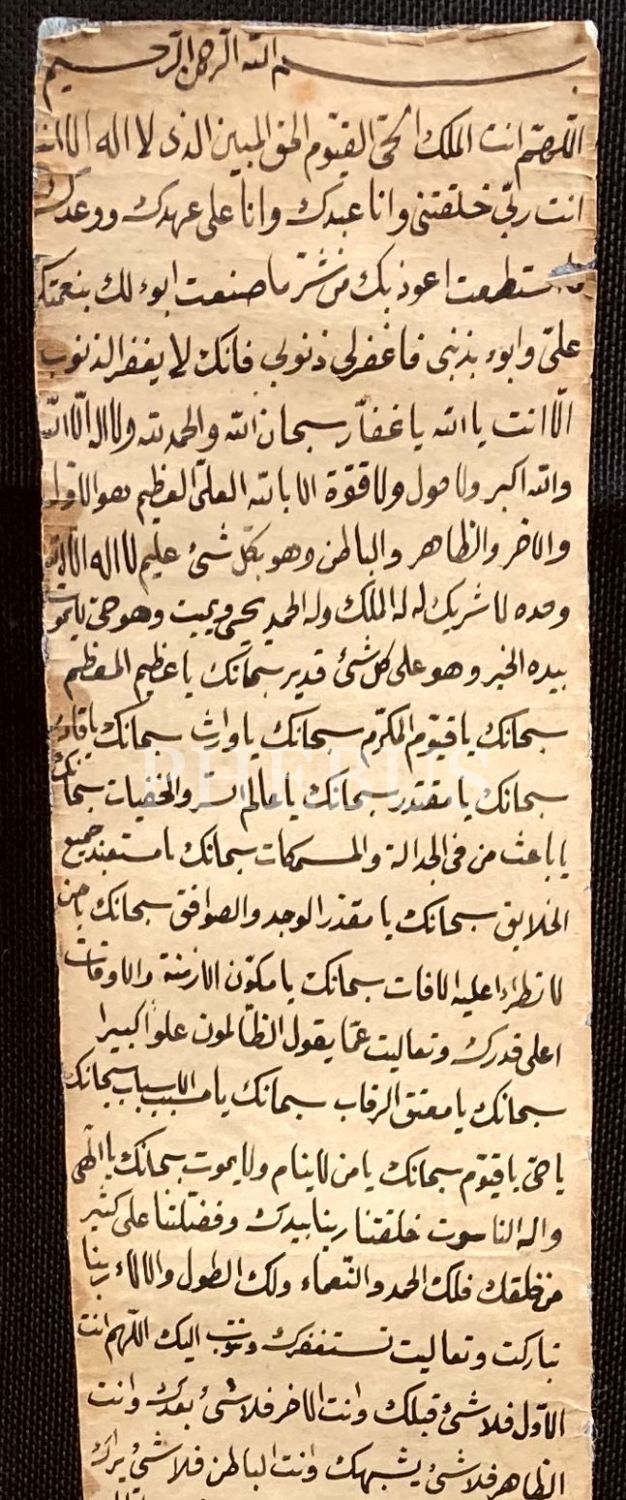 بسم الله الرحمن الرحيم
اللهم انت الملك الحى القيوم الحق المبين الذى لا اله الا انت
انت ربى خلقتنى وانا عبدك وانا على عهدك ووعدك
ما استطعت اعوذ بك من شر ما صنعت ابوء لك بنعمتك
على وابوء بذنبى فاغفرلى ذنوبى فانك لا يغفر الذنوب
الا انت يا الله يا غفار سبحان الله والحمد لله ولا اله الا الله
والله اكبر ولا حول ولا قوة الا بالله العلى العظيم هو الاول
والاخر والظاهر والباطن وهو بكل شئ عليم لا اله الا الله
وحده لا شريك له له الملك وله الحمد يحيى ويميت وهو حى لا يموت
بيده الخير وهو على كل شئ قدير سبحانك يا عظيم المعظم
سبحانك يا قيوم المكرم سبحانك يا وارث سبحانك يا قادر
سبحانك يا مقتدر سبحانك يا عالم السر والخفيات سبحانك
يا باعث من فى الجدالة والمسمكات سبحانك يا مستعبد جميع
الخلايق سبحانك يا مقدر الوجد والصوافق سبحانك يا من
لا تطراء عليه الافات سبحانك يا مكون الازمنة والاوقات
اعلى قدرك وتعاليت عما يقول الظالمون علوا كبيرا
سبحانك يا معتق الرقاب سبحانك يا مسبب الاسباب سبحانك
يا حى يا قيوم سبحانك يا من لا ينام ولا يموت سبحانك يا الهى
واله الناسوت خلقتنا ربنا بيدك وفضلتنا على كثير
من خلقك فلك الحمد والنعماء ولك الطول والالاء ربنا
تباركت وتعاليت نستغفرك ونتوب اليك اللهم انت
الاول فلا شئ قبلك وانت الاخر فلا شئ بعدك وانت
الظاهر فلا شئ يشبهك وانت الباطن فلا شئ يراك
PHEBUS